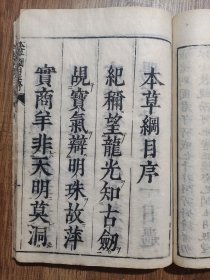 本草綱目序
紀稱望龍光知古劒
覘寶氣辯明珠故萍
實商羊非天明莫洞